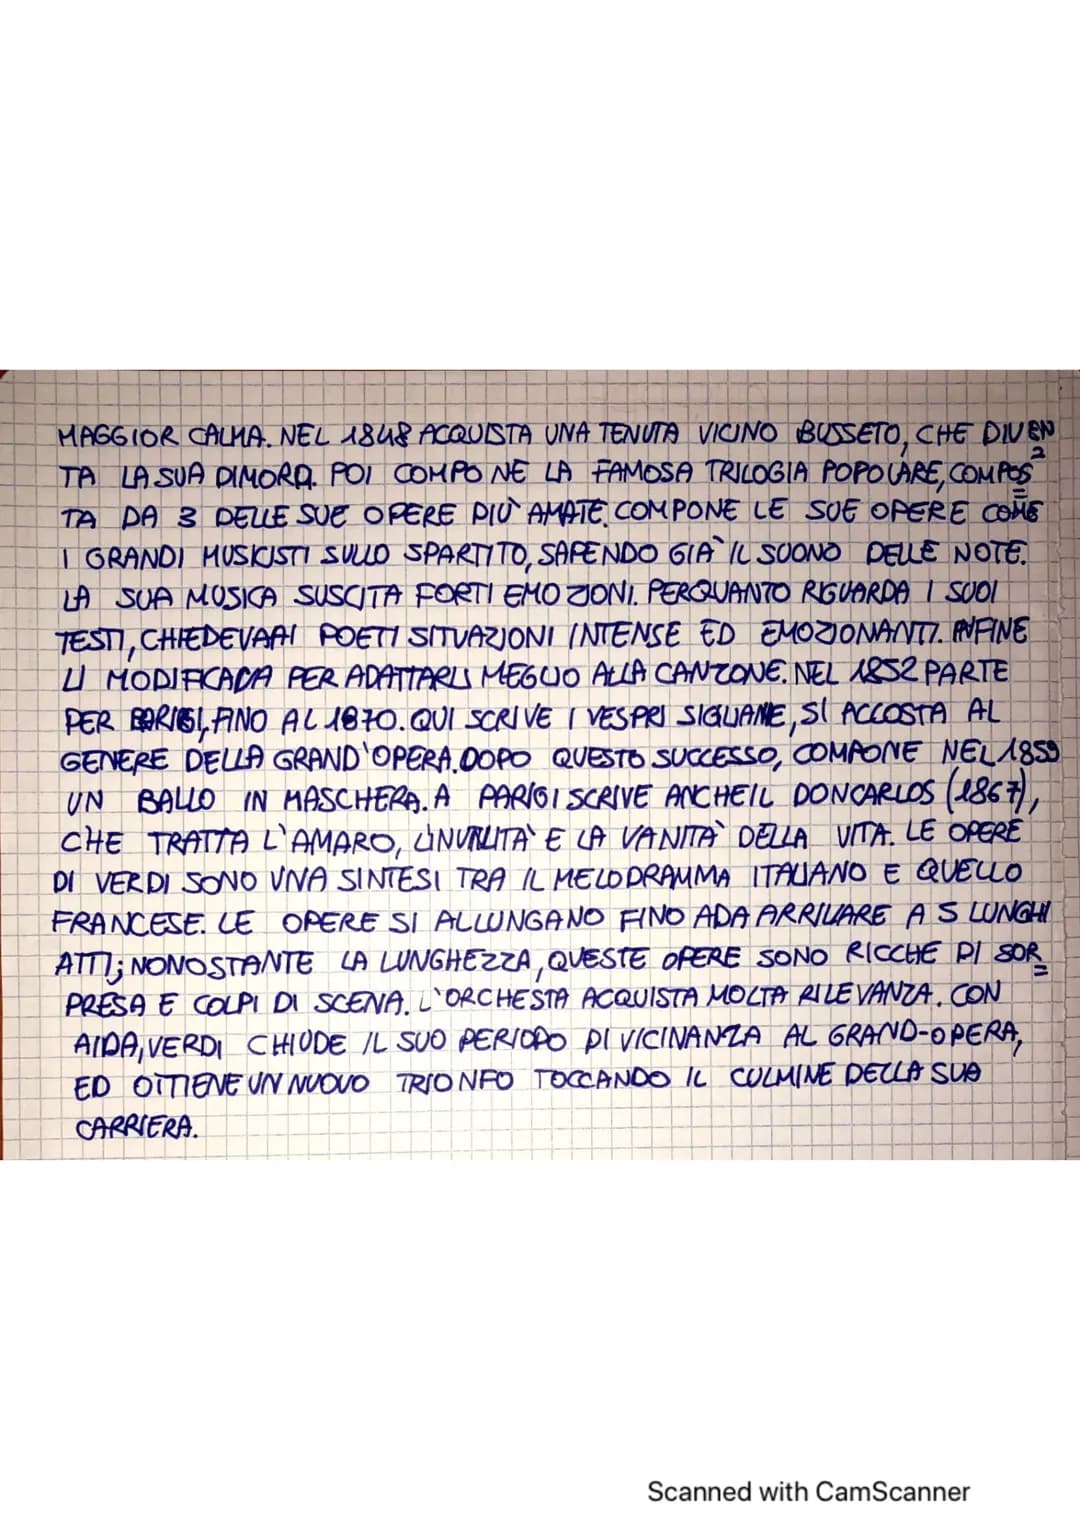 MAGGIOR CALMA. NEL 1848 ACQUISTA UNA TENUTA VICINO BUSSETO, CHE DIVEN
TA LA SUA DIMORA. POI COMPONE LA FAMOSA TRILOGIA POPOLARE, COMPOS=
TA DA 3 DELLE SUE OPERE PIÙ AMATE. COMPONE LE SUE OPERE COME
I GRANDI MUSICISTI SULLO SPARTITO, SAPENDO GIA' IL SUONO DELLE NOTE.
LA SUA MUSICA SUSCITA FORTI EMOZIONI. PER QUANTO RIGUARDA I SUOI
TESTI, CHIEDEVA AI POETI SITUAZIONI INTENSE ED EMOZIONANTI. INFINE
LI MODIFICAVA PER ADATTARLI MEGLIO ALLA CANZONE. NEL 1852 PARTE
PER PARIGI, FINO AL 1870. QUI SCRIVE I VESPRI SICILIANE, SI ACCOSTA AL
GENERE DELLA GRAND'OPERA. DOPO QUESTO SUCCESSO, COMPONE NEL 1859
UN BALLO IN MASCHERA. A PARIGI SCRIVE ANCHE IL DONCARLOS (1867),
CHE TRATTA L'AMARO, L'INUTILITA' E LA VANITA' DELLA VITA. LE OPERE
DI VERDI SONO UNA SINTESI TRA IL MELODRAMMA ITALIANO E QUELLO
FRANCESE. LE OPERE SI ALLUNGANO FINO ADA ARRIVARE A 5 LUNGHI
ATTI; NONOSTANTE LA LUNGHEZZA, QUESTE OPERE SONO RICCHE DI SOR=
PRESA E COLPI DI SCENA. L'ORCHESTA ACQUISTA MOLTA RILEVANZA. CON
AIDA, VERDI CHIUDE IL SUO PERIODO DI VICINANZA AL GRAND-OPERA,
ED OTTIENE UN NUOVO TRIONFO TOCCANDO IL CULMINE DELLA SUA
CARRIERA.
Scanned with CamScanner